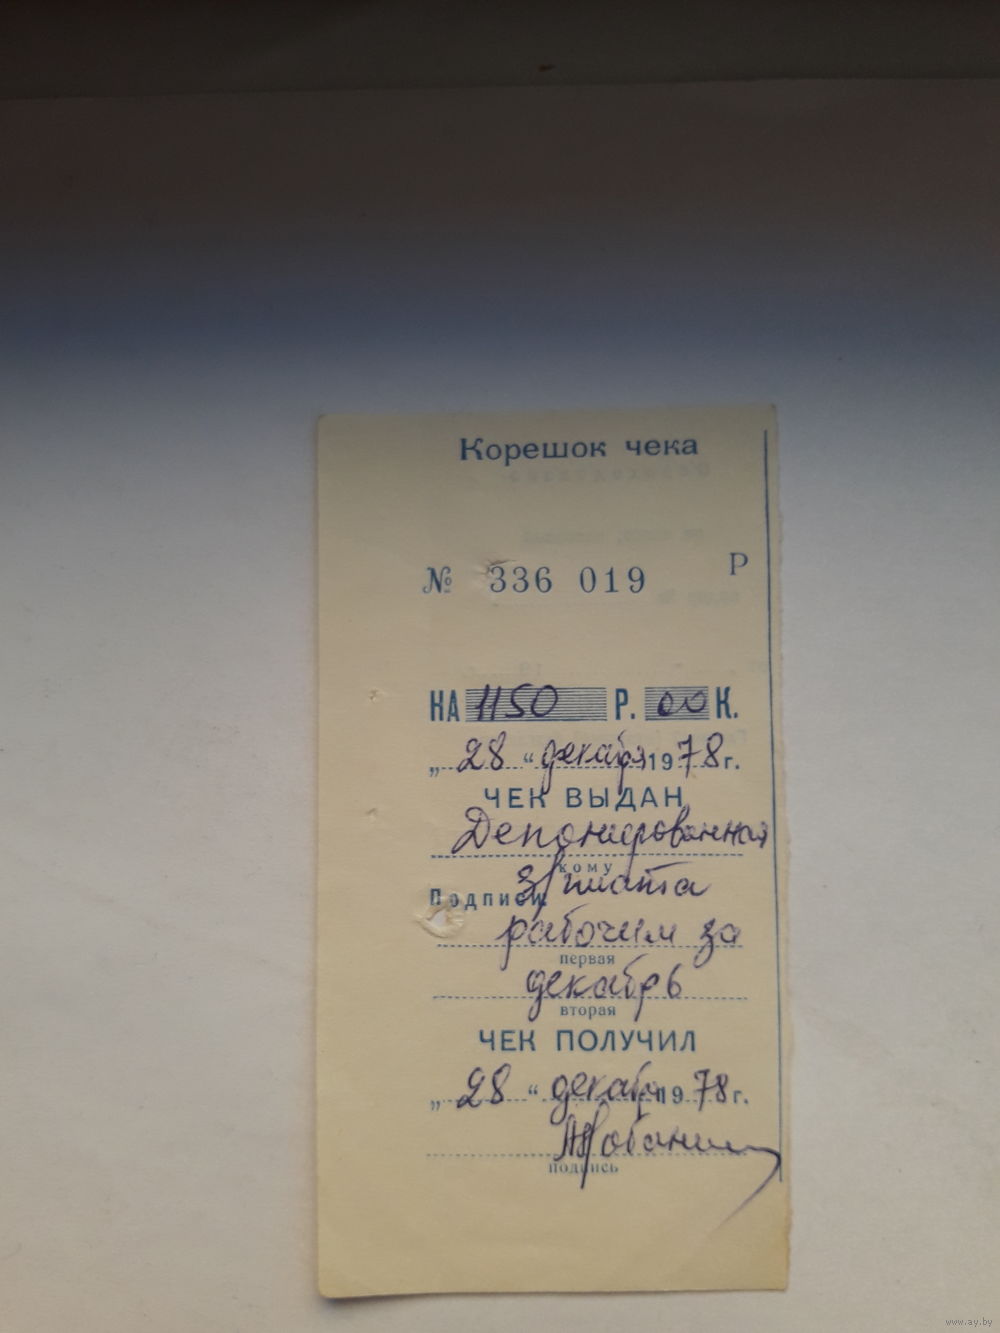 Корешок чека
Р
№ 336 019
НА 1150 Р. 00 К.
„ 28 “ декабря 1978 г.
ЧЕК ВЫДАН
Депонированная
кому
з/плата
Подписи:
рабочим за
первая
декабрь
вторая
ЧЕК ПОЛУЧИЛ
„ 28 “ декабря 1978 г.
подпись
www.ay.by